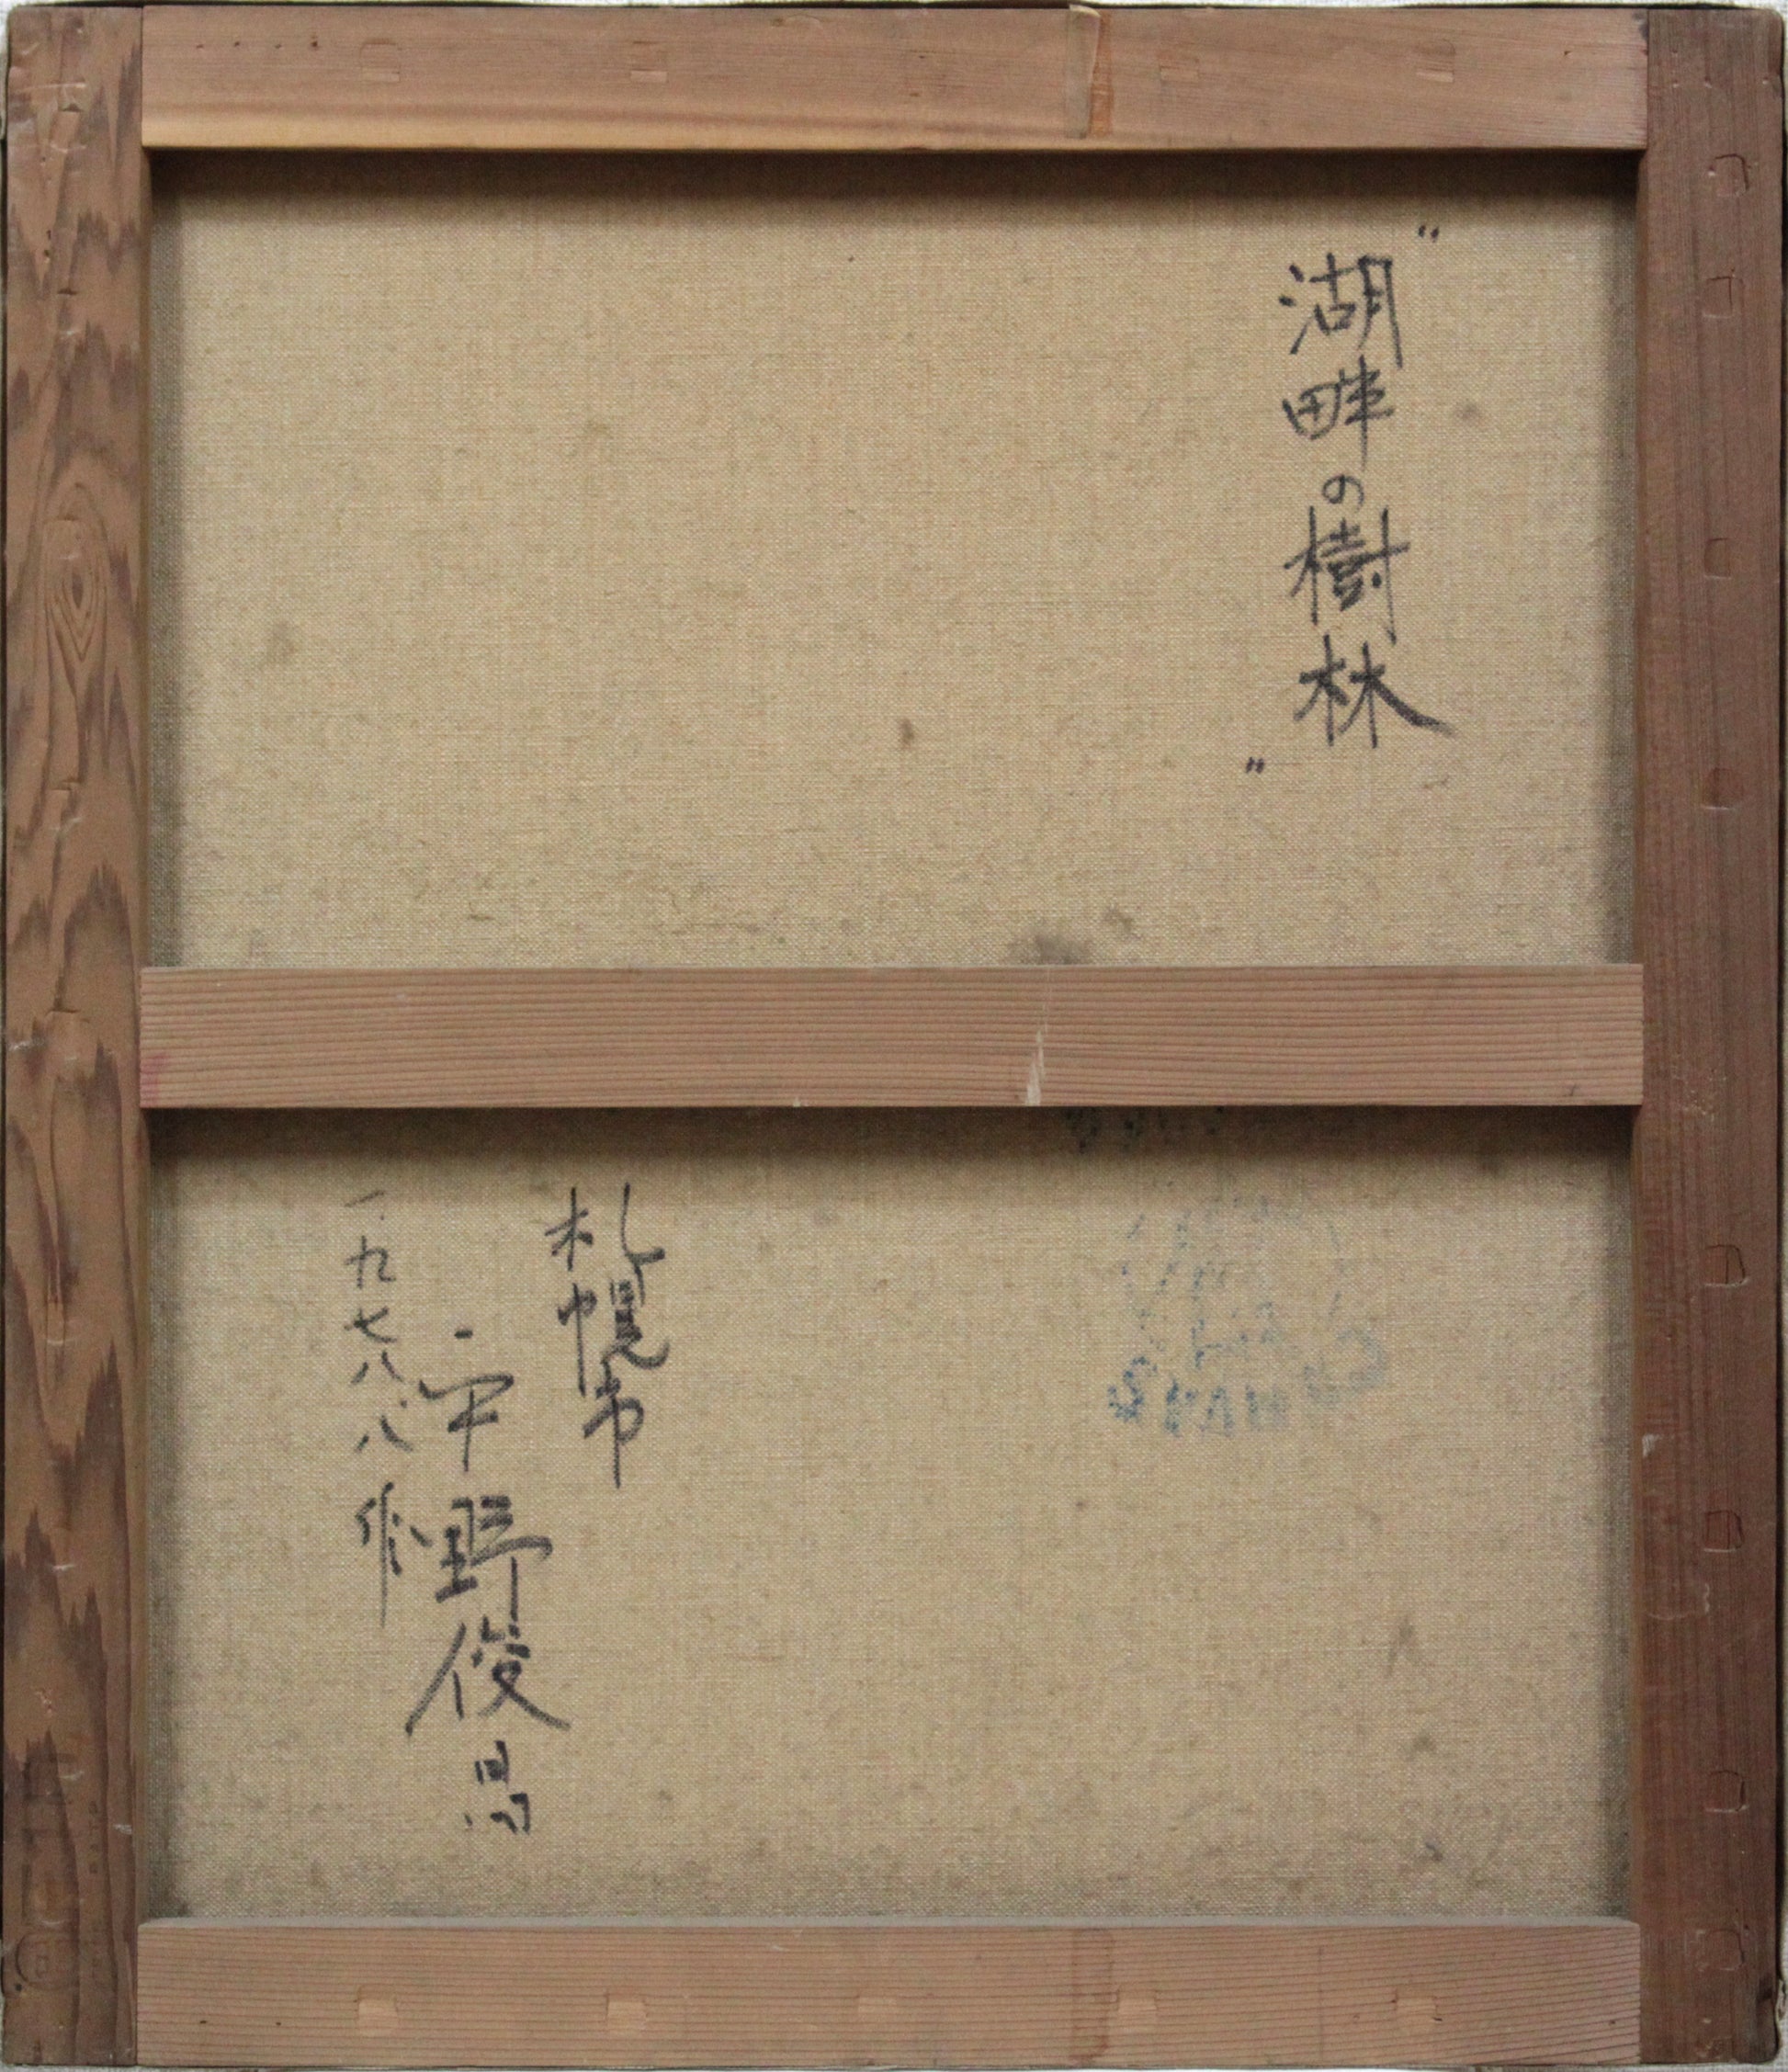 "湖畔の樹林"
札幌市
平野俊昌
一九七八.八作